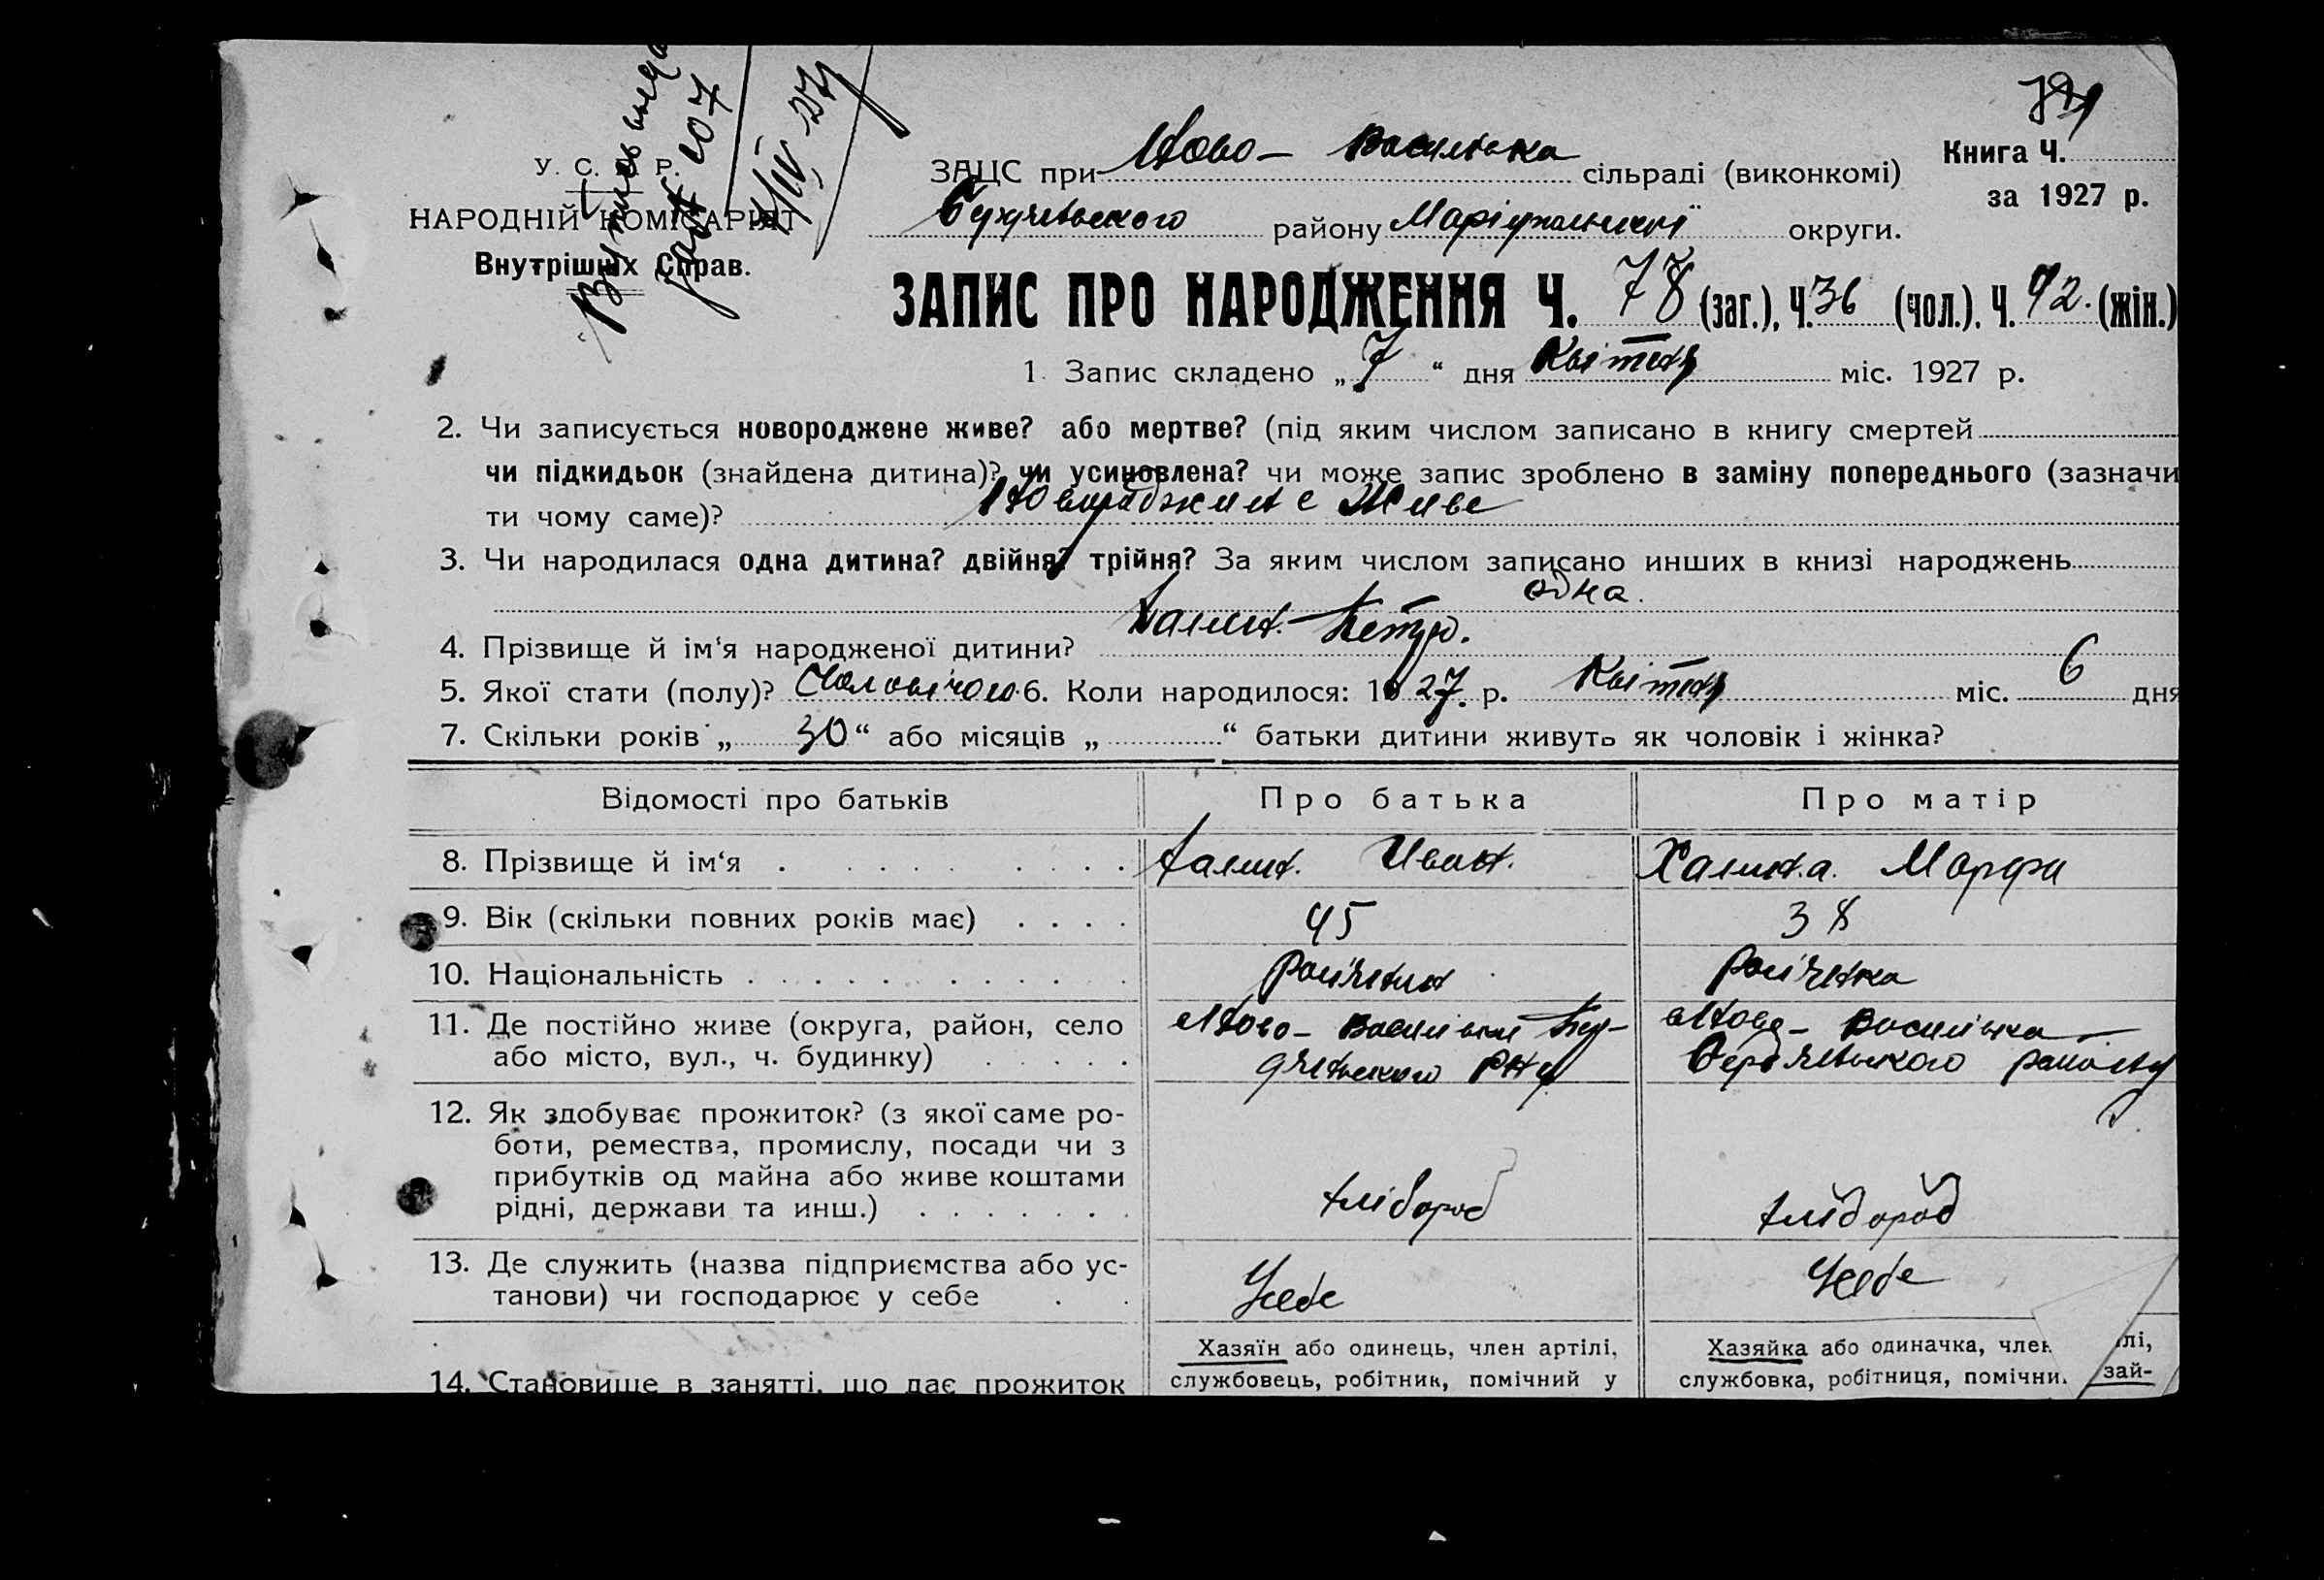 У. С. Р. Р.
НАРОДНІЙ КОМІСАРІЯТ
Внутрішніх Справ.
Витяг видано
за № 107
7/IV 27
Книга Ч.
за 1927 р.
ЗАЦС при Ново- Василівка сільраді (виконкомі)
району Маріупольської округи.
ЗАПИС ПРО НАРОДЖЕННЯ Ч. 78 (заг.), Ч. 36 (чол.), Ч. 42. (жін.)
1. Запис складено „ 7 “ дня Квітня міс. 1927 р.
2. Чи записується новороджене живе? або мертве? (під яким числом записано в книгу смертей
чи підкидьок (знайдена дитина)? чи усиновлена? чи може запис зроблено в заміну попереднього (зазначи
ти чому саме)? Новораджине Живе
3. Чи народилася одна дитина? двійня? трійня? За яким числом записано инших в книзі народжень
одна.
4. Прізвище й ім‘я народженої дитини? Халин. Петро.
5. Якої стати (полу)? Чоловічої. 6. Коли народилося: 1927. р. Квітня міс. 6 дня
7. Скільки років „ 30 “ або місяців „ “ батьки дитини живуть як чоловік і жінка?
Відомості про батьків Про батька Про матір
8. Прізвище й ім‘я Халин. Иван. Халина. Марфа
9. Вік (скільки повних років має) 45 38
10. Національність
11. Де постійно живе (округа, район, село Ново- Василівка Бер- Ново- Василівка
або місто, вул., ч. будинку) району
12. Як здобуває прожиток? (з якої саме ро-
боти, ремества, промислу, посади чи з
прибутків од майна або живе коштами
рідні, держави та инш.) хлібороб хлібороб
13. Де служить (назва підприємства або ус-
танови) чи господарює у себе Усебе Усебе
Хазяїн або одинець, член артілі, Хазяйка або одиначка, член лі,
14. Становище в занятті, що дає прожиток службовець, робітник, помічний у службовка, робітниця, помічни. зай-